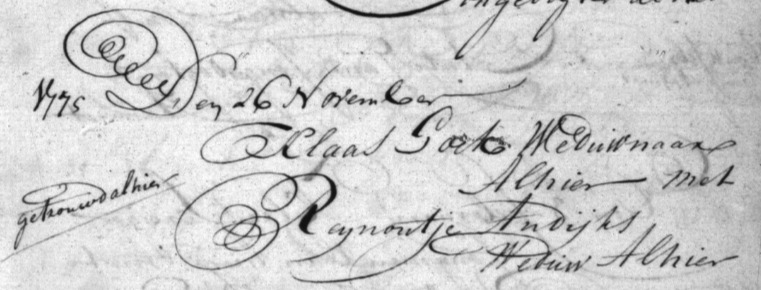 1775 Den 26 November
Klaas Goet Weduwnaar
Alhier met
getrouwd alhier
Reynoutje Andijks
Weduw Alhier